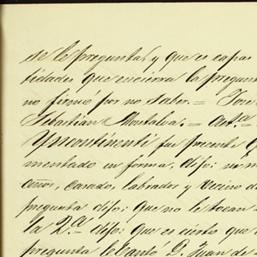 se le pregunta, y que es capas
tidades que encierra la pregun
no firmó por no saber. = Jose
Sebastian Montalva. = Ant.a
Yncontinenti fue presente
mentado en forma, dijo:
años, casado, labrador y vecino d
pregunta dijo: Que no le tocan
la 2.a dijo: Que es cierto que
pregunta le cantó D. Juan de